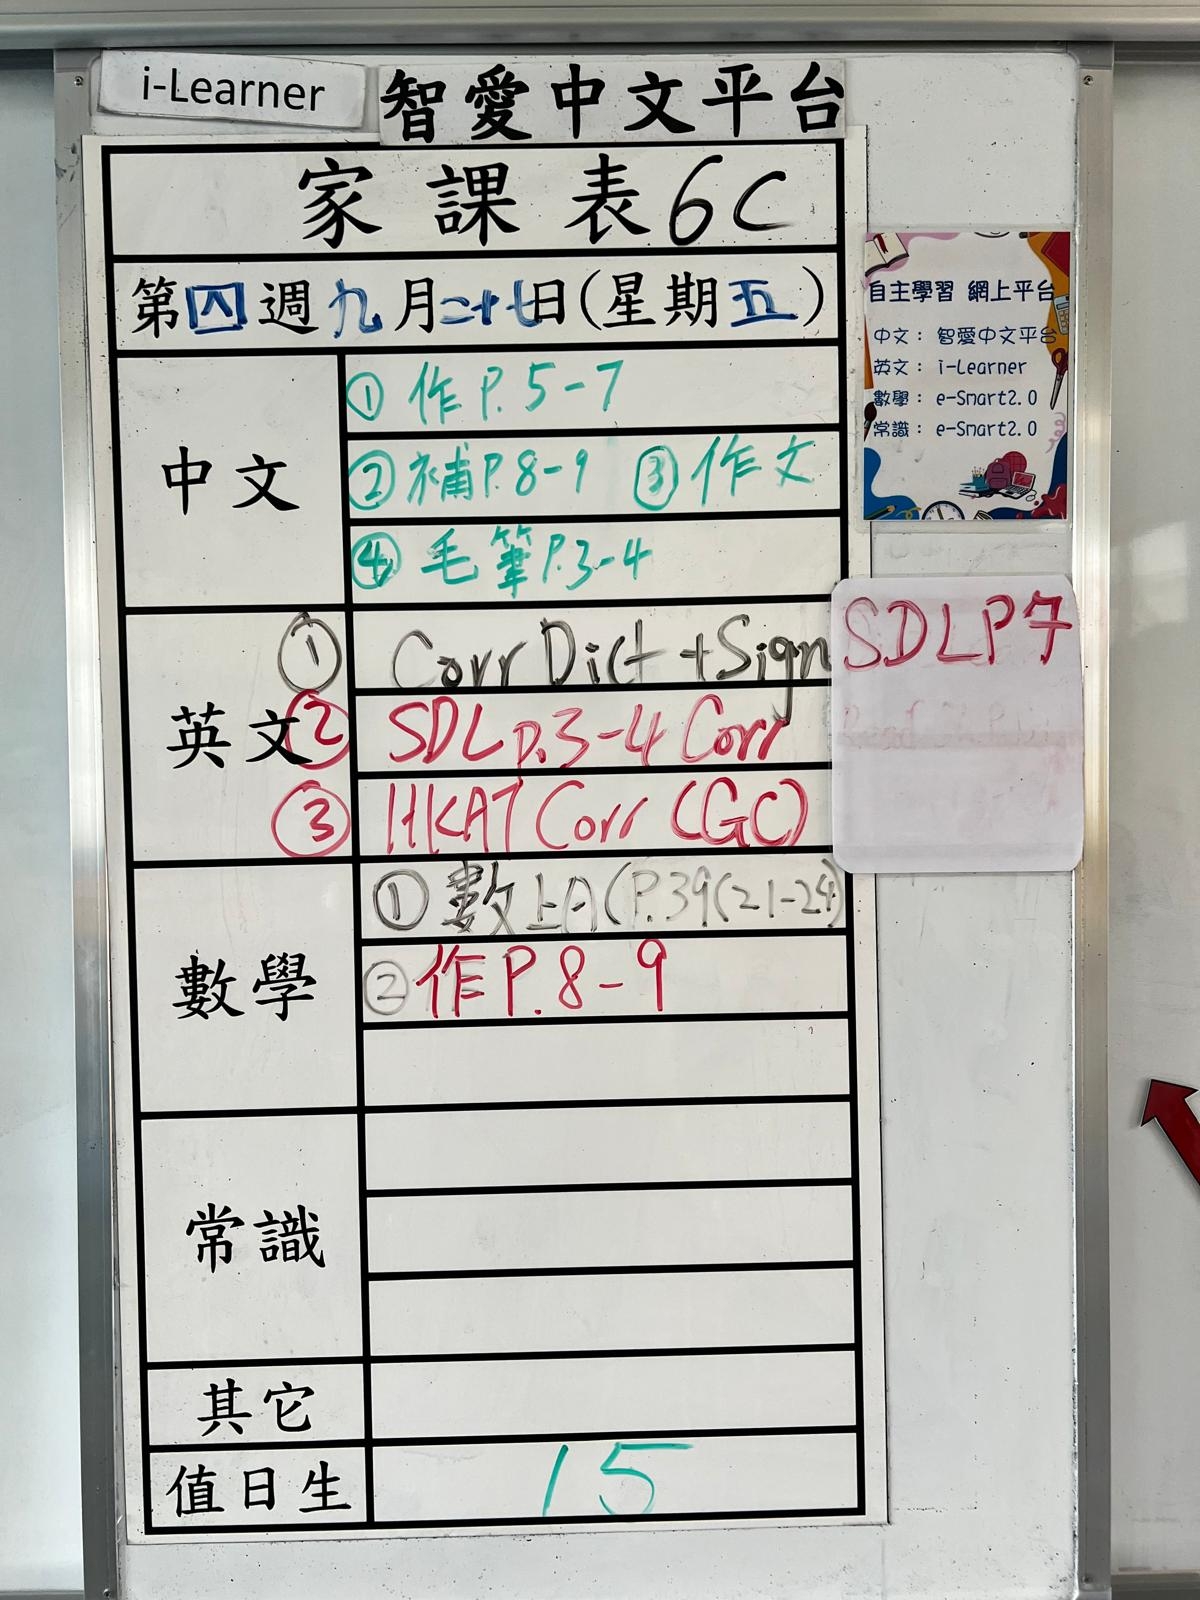 i-Learner 智愛中文平台
家課表6C
第四週九月二十七日(星期五)
自主學習 網上平台
中文：智愛中文平台
英文：i-Learner
數學：e-Smart2.0
常識：e-Smart2.0
中文
① 作P.5-7
② 補P.8-9 ③ 作文
④ 毛筆P.3-4
英文
① Corr Dict +Sign
② SDL p.3-4 Corr
③ HKAT Corr (GC)
SDL P7
數學
① 數上A(P.39(21-24)
② 作P.8-9
常識
其它
值日生
15